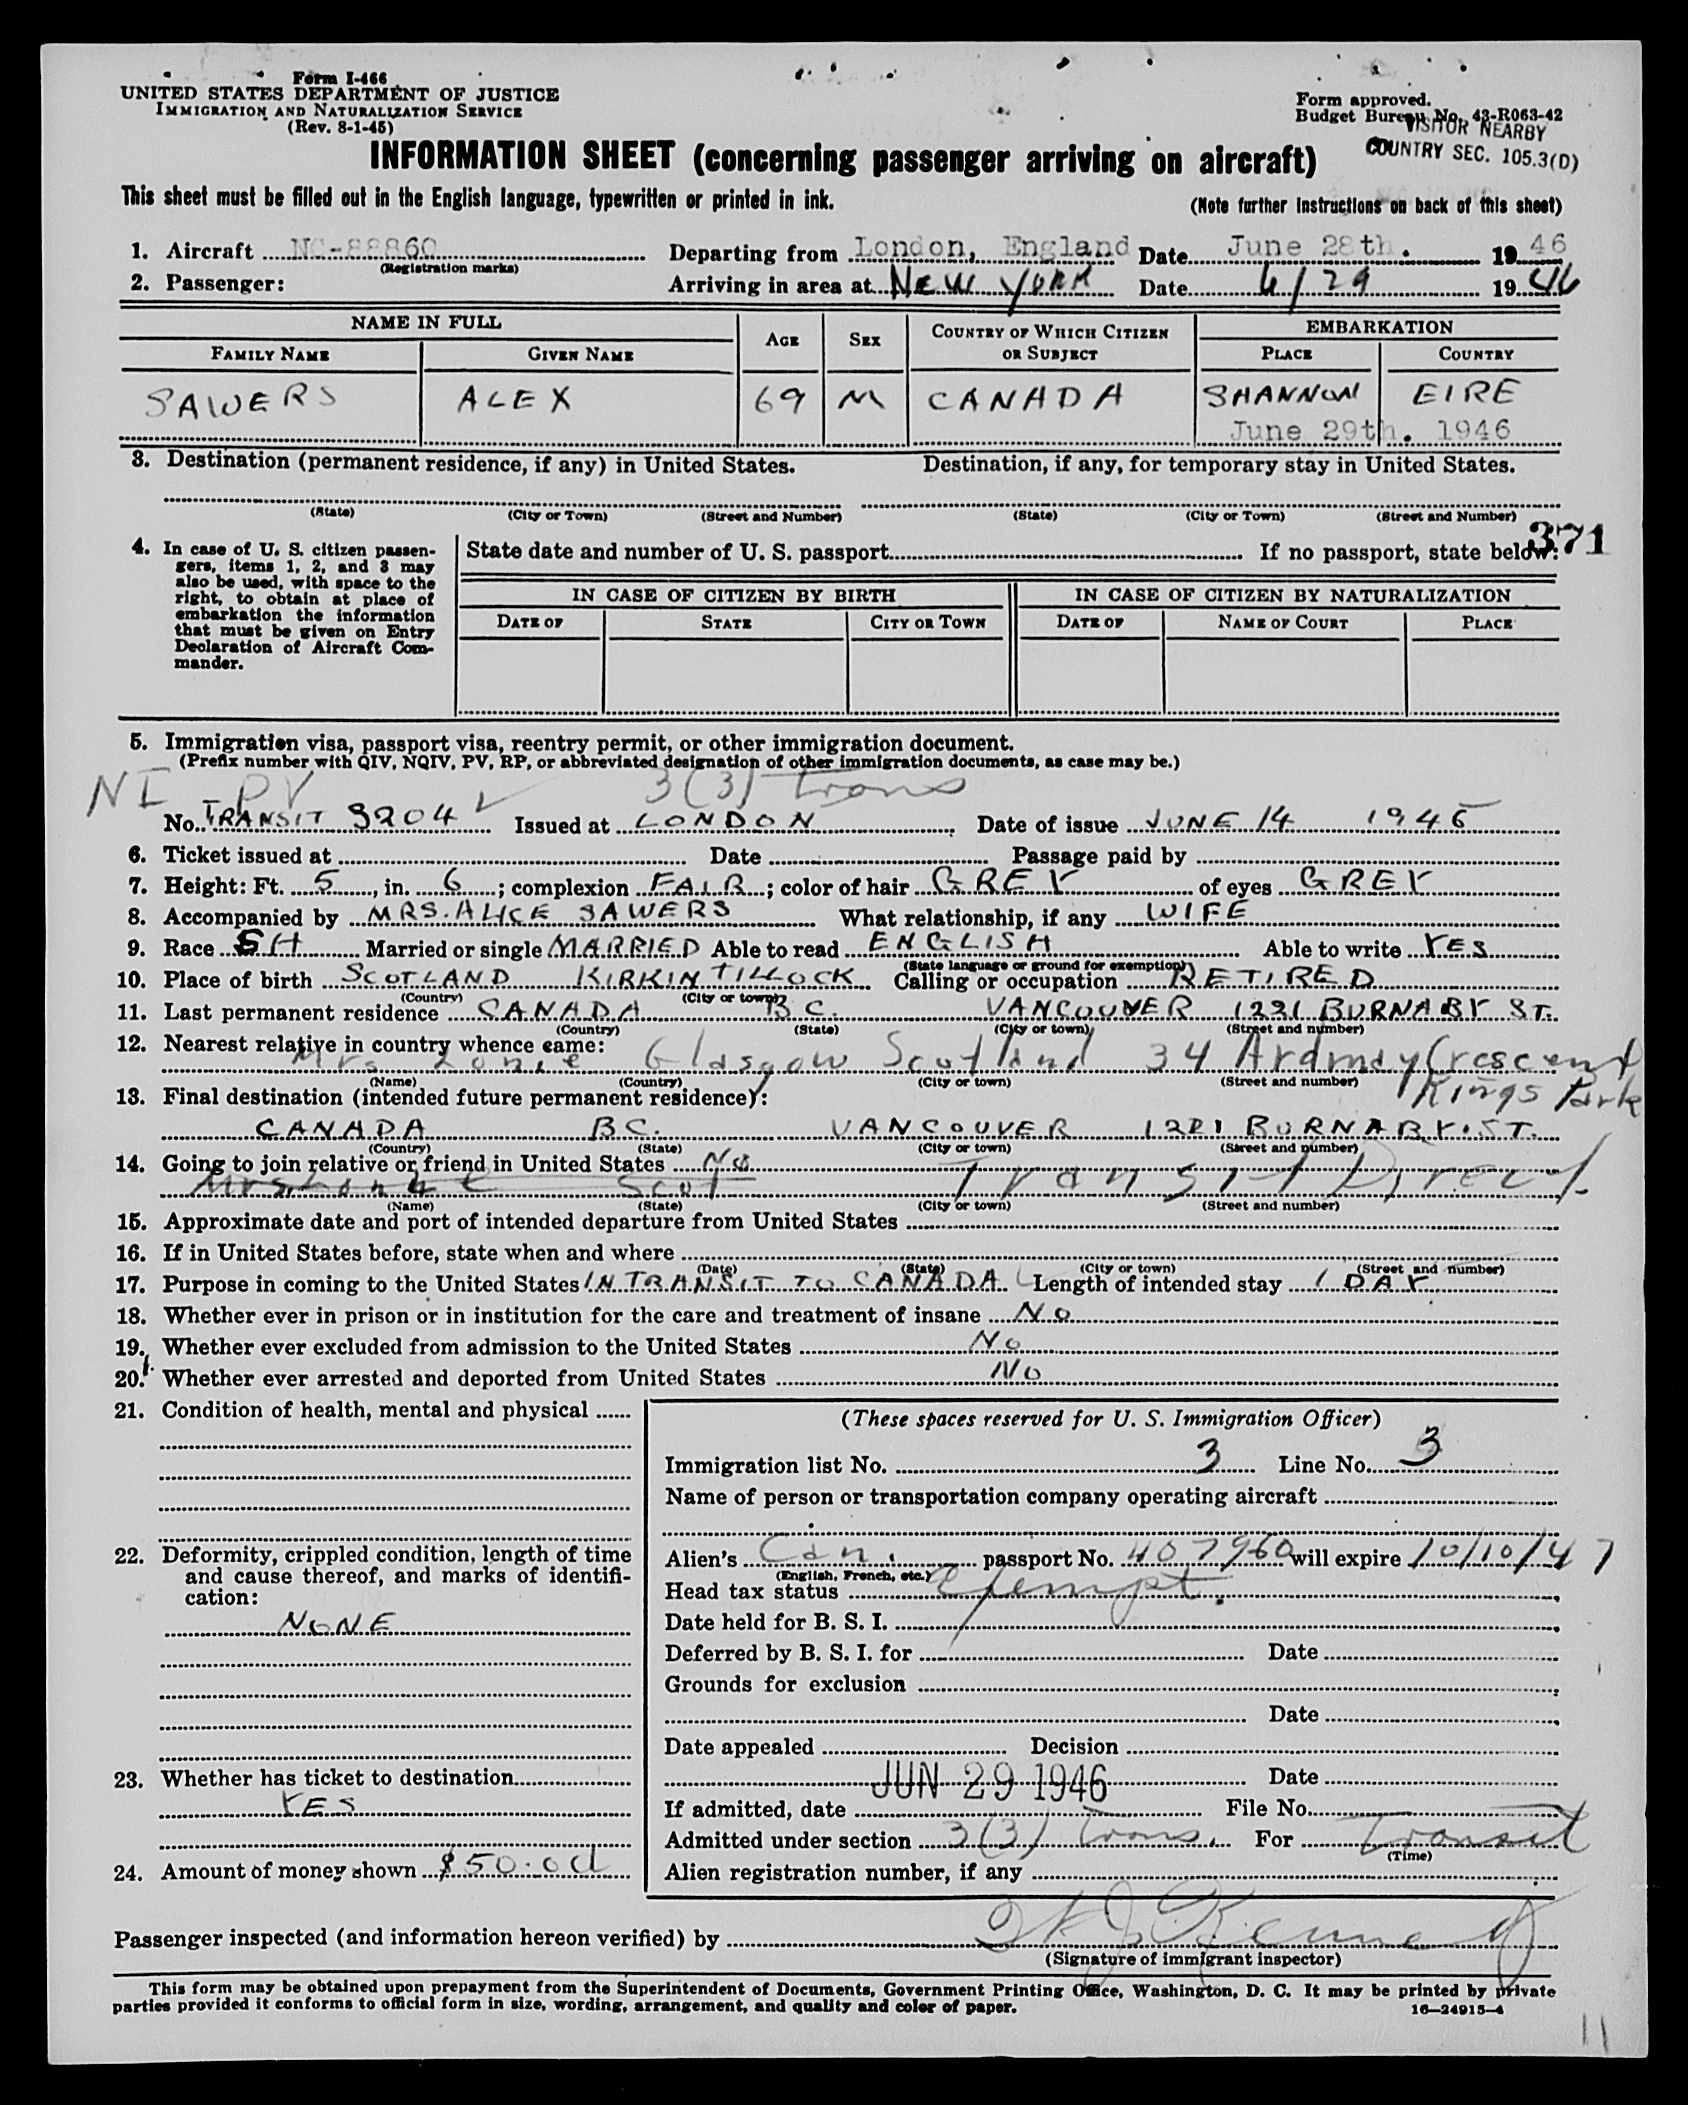 Form I-466
UNITED STATES DEPARTMENT OF JUSTICE
IMMIGRATION AND NATURALIZATION SERVICE
(Rev. 8-1-45)
Form approved.
Budget Bureau No. 43-R063-42
VISITOR NEARBY
COUNTRY SEC. 105.3(D)
INFORMATION SHEET (concerning passenger arriving on aircraft)
This sheet must be filled out in the English language, typewritten or printed in ink.
(Note further instructions on back of this sheet)
1. Aircraft NC-88860 Departing from London, England Date June 28th. 1946
(Registration marks)
2. Passenger: Arriving in area at NEW YORK Date 6/29 1946
NAME IN FULL AGE SEX COUNTRY OF WHICH CITIZEN OR SUBJECT EMBARKATION
FAMILY NAME GIVEN NAME PLACE COUNTRY
SAWERS ALEX 69 M CANADA SHANNON EIRE
June 29th. 1946
3. Destination (permanent residence, if any) in United States. Destination, if any, for temporary stay in United States.
(State) (City or Town) (Street and Number) (State) (City or Town) (Street and Number)
371
4. In case of U. S. citizen passengers, items 1, 2, and 3 may also be used, with space to the right, to obtain at place of embarkation the information that must be given on Entry Declaration of Aircraft Commander.
State date and number of U. S. passport If no passport, state below:
IN CASE OF CITIZEN BY BIRTH IN CASE OF CITIZEN BY NATURALIZATION
DATE OF STATE CITY OR TOWN DATE OF NAME OF COURT PLACE
5. Immigration visa, passport visa, reentry permit, or other immigration document.
(Prefix number with QIV, NQIV, PV, RP, or abbreviated designation of other immigration documents, as case may be.)
NI PV 3(3) trans
No. TRANSIT 3204 Issued at LONDON Date of issue JUNE 14 1946
6. Ticket issued at Date Passage paid by
7. Height: Ft. 5, in. 6; complexion FAIR; color of hair GREY of eyes GREY
8. Accompanied by MRS. ALICE SAWERS What relationship, if any WIFE
9. Race SH Married or single MARRIED Able to read ENGLISH Able to write YES
(State language or ground for exemption)
10. Place of birth SCOTLAND KIRKINTILLOCK Calling or occupation RETIRED
(Country) (City or town)
11. Last permanent residence CANADA B C. VANCOUVER 1221 BURNABY ST.
(Country) (State) (City or town) (Street and number)
12. Nearest relative in country whence came:
Mrs Lonie Glasgow Scotland 34 Ardmay Crescent
(Name) (Country) (City or town) (Street and number) Kings Park
13. Final destination (intended future permanent residence):
CANADA BC. VANCOUVER 1221 BURNABY. ST.
(Country) (State) (City or town) (Street and number)
14. Going to join relative or friend in United States NO
Scot Transit Direct.
(Name) (State) (City or town) (Street and number)
15. Approximate date and port of intended departure from United States
16. If in United States before, state when and where
(Date) (State) (City or town) (Street and number)
17. Purpose in coming to the United States IN TRANSIT TO CANADA Length of intended stay 1 DAY
18. Whether ever in prison or in institution for the care and treatment of insane NO
19. Whether ever excluded from admission to the United States NO
20. Whether ever arrested and deported from United States NO
21. Condition of health, mental and physical
22. Deformity, crippled condition, length of time and cause thereof, and marks of identification:
NONE
23. Whether has ticket to destination
YES
24. Amount of money shown $50.00
(These spaces reserved for U. S. Immigration Officer)
Immigration list No. 3 Line No. 3
Name of person or transportation company operating aircraft
Alien's Can. passport No. 407960 will expire 10/10/47
(English, French, etc.)
Head tax status Exempt.
Date held for B. S. I.
Deferred by B. S. I. for Date
Grounds for exclusion
Date
Date appealed Decision
JUN 29 1946 Date
If admitted, date File No.
Admitted under section 3(3) trans. For Transit
(Time)
Alien registration number, if any
Passenger inspected (and information hereon verified) by
(Signature of immigrant inspector)
This form may be obtained upon prepayment from the Superintendent of Documents, Government Printing Office, Washington, D. C. It may be printed by private
parties provided it conforms to official form in size, wording, arrangement, and quality and color of paper.
16—24915-4
11